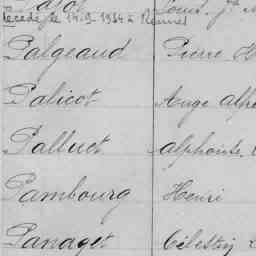 décédé le 14.9.1954 à Rennes
Palgeaud Pierre
Palicot Ange
Palluet Alphonse
Pambourg Henri
Panaget Célestin